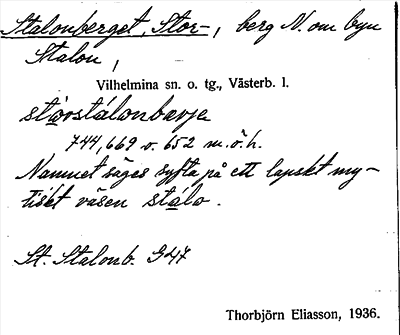 Stalonberget, Stor-, berg N. om byn
Stalon,
Vilhelmina sn. o. tg., Västerb. l.
stórstálonbærje
744,669 o. 652 m.ö.h.
Namnet säges syfta på ett lapskt my-
tiskt väsen stálo.
St. Stalonb. G47
Thorbjörn Eliasson, 1936.